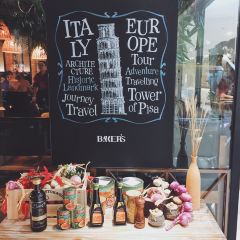 ITA
LY
ARCHITE
CTURE
Historic
Landmark
Journey
Travel
EUR
OPE
Tour
Adventure
Travelling
Tower
of Pisa
BAKER'S